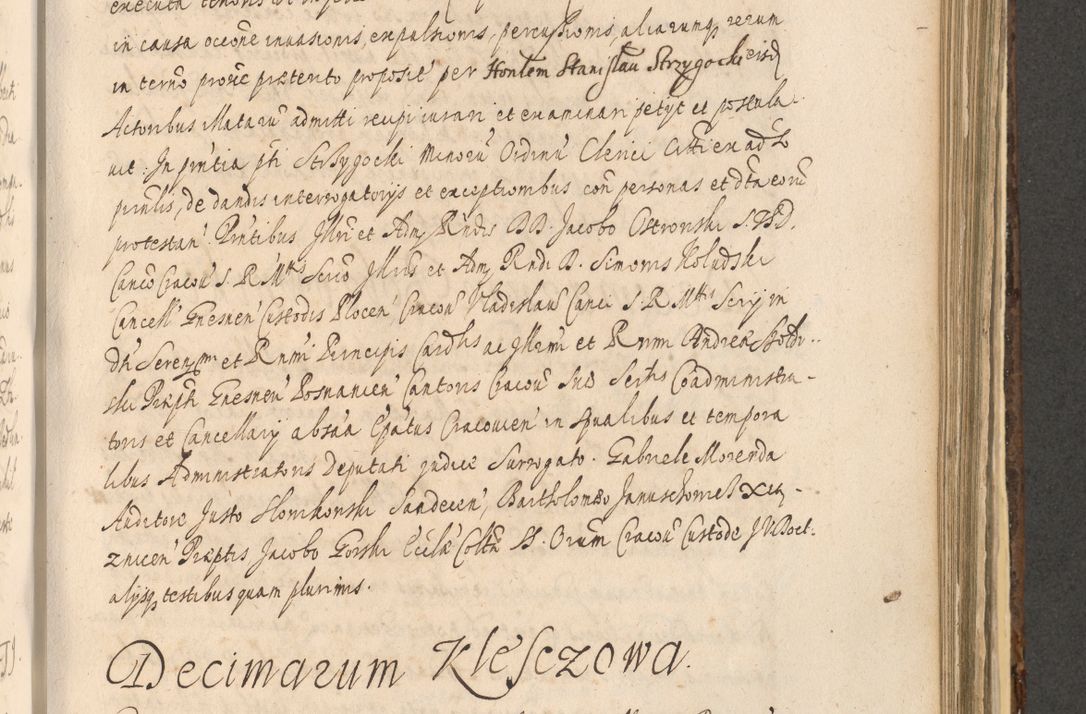 in causa occone inuasionis, expulsionis, percussionis, aliarumq rerum
in termo proxie præterito proposit per Honlem Stanislau Strzygocki eisd
Actoribus Mataru admitti recipi iurari et examinari petyt et postula-
uit. In pritia pti Strzygocki Minoru Ordinu Clerici Citti ex adso
prinlis, de dandis interrogatorys et exceptionibus con personas et dta eoru
protestan. Pntibus Illri et Adm Rndis DD. Jacobo Ostronski S.
Canco Cracou S. R. Mttis Scrio Illris et Adm Rndi D. Simonis Koludski
Cancell Gnesnen Custodis Plocen Cracou Vladislau Canci S. R. Mttis Scrij in
di Serenissmi et Rnmi Principis Cardlis ac Illrmi et Rnmi Andreæ Skoldr-
ski Præpti Gnesnen Posnanien Cantoris Cracou Coadministra-
toris et Cancellarij Epatus Cracouien in squalibus et tempora
libus Administratoris Deputati judice Surrogato. Gabriele Morenda
Auditore Justo Slowikowski Sandecen, Bartholomeo Januschowel Xią-
znicen Præptis Jacobo Gorski Eccle Collta SS. Orum Cracou Custode J V Doct.
alijsq testibus quam plurimis.
Decimarum Klesczowa.